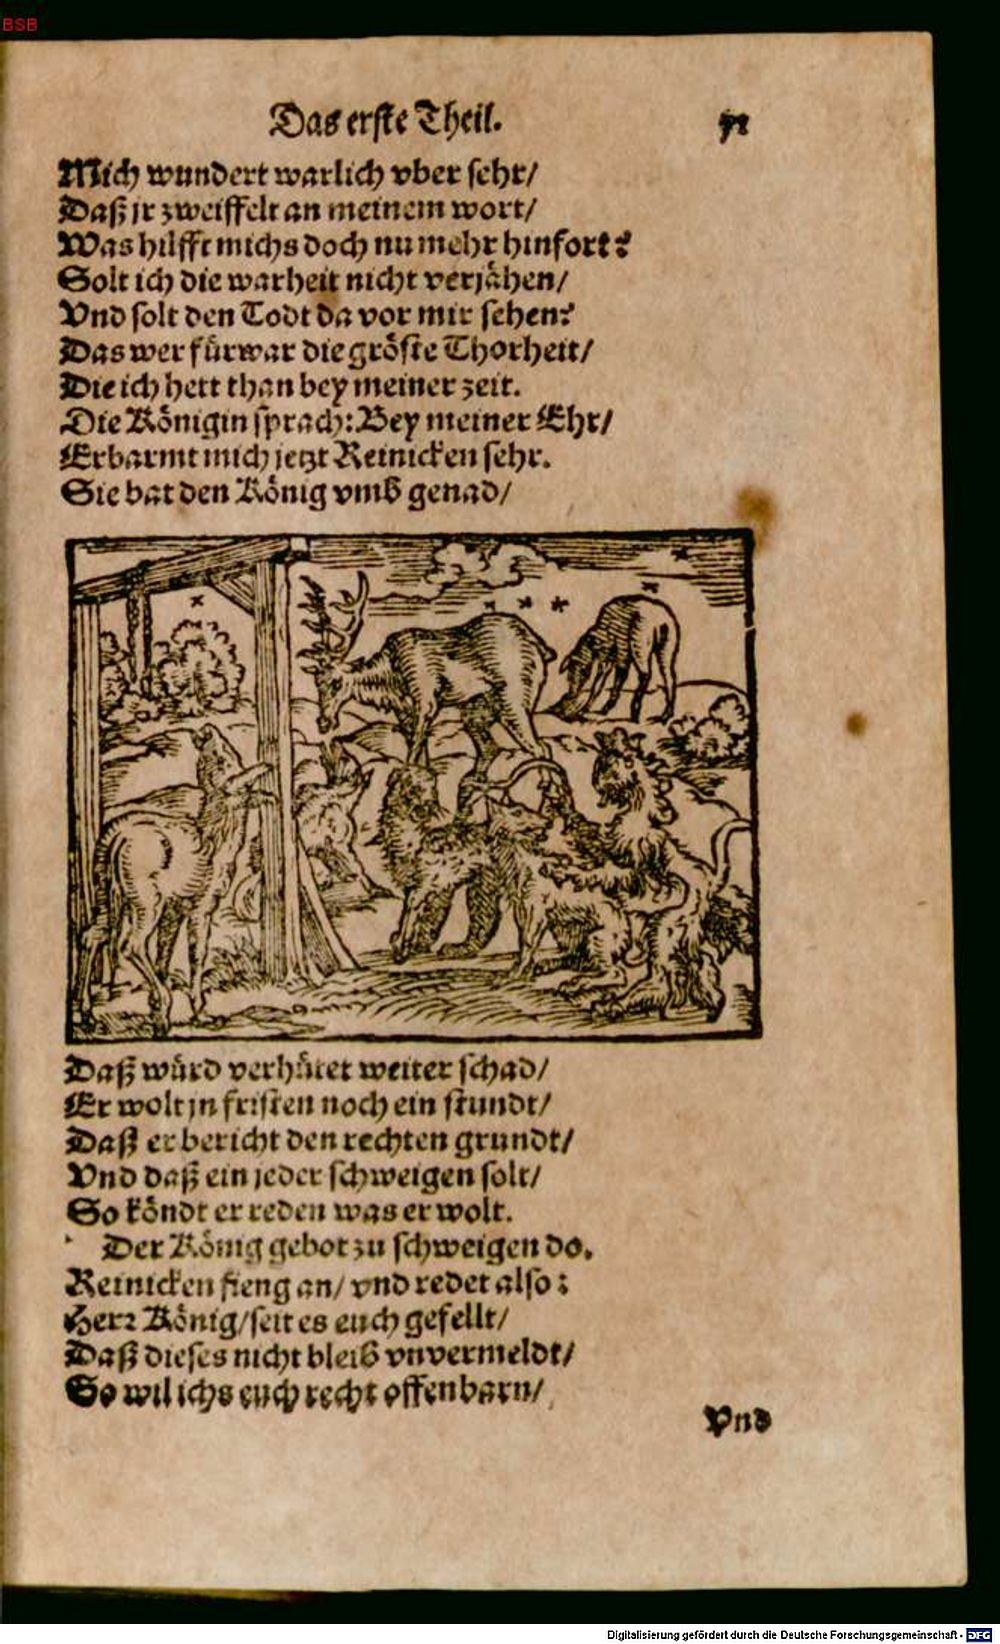 BSB
Das erste Theil. 71
Mich wundert warlich vber sehr/
Daß jr zweiffelt an meinem wort/
Was hilfft michs doch nu mehr hinfort?
Solt ich die warheit nicht verjähen/
Vnd solt den Todt da vor mir sehen?
Das wer fürwar die gröste Thorheit/
Die ich hett than bey meiner zeit.
Die Königin sprach: Bey meiner Ehr/
Erbarmt mich jetzt Reinicken sehr.
Sie bat den König vmb genad/
Daß würd verhütet weiter schad/
Er wolt jn fristen noch ein stundt/
Daß er bericht den rechten grundt/
Vnd daß ein jeder schweigen solt/
So köndt er reden was er wolt.
Der König gebot zu schweigen do.
Reinicken fieng an/ vnd redet also:
Herr König/ seit es euch gefellt/
Daß dieses nicht bleib vnvermeldt/
So wil ichs euch recht offenbarn/
Vnd
Digitalisierung gefördert durch die Deutsche Forschungsgemeinschaft - DFG